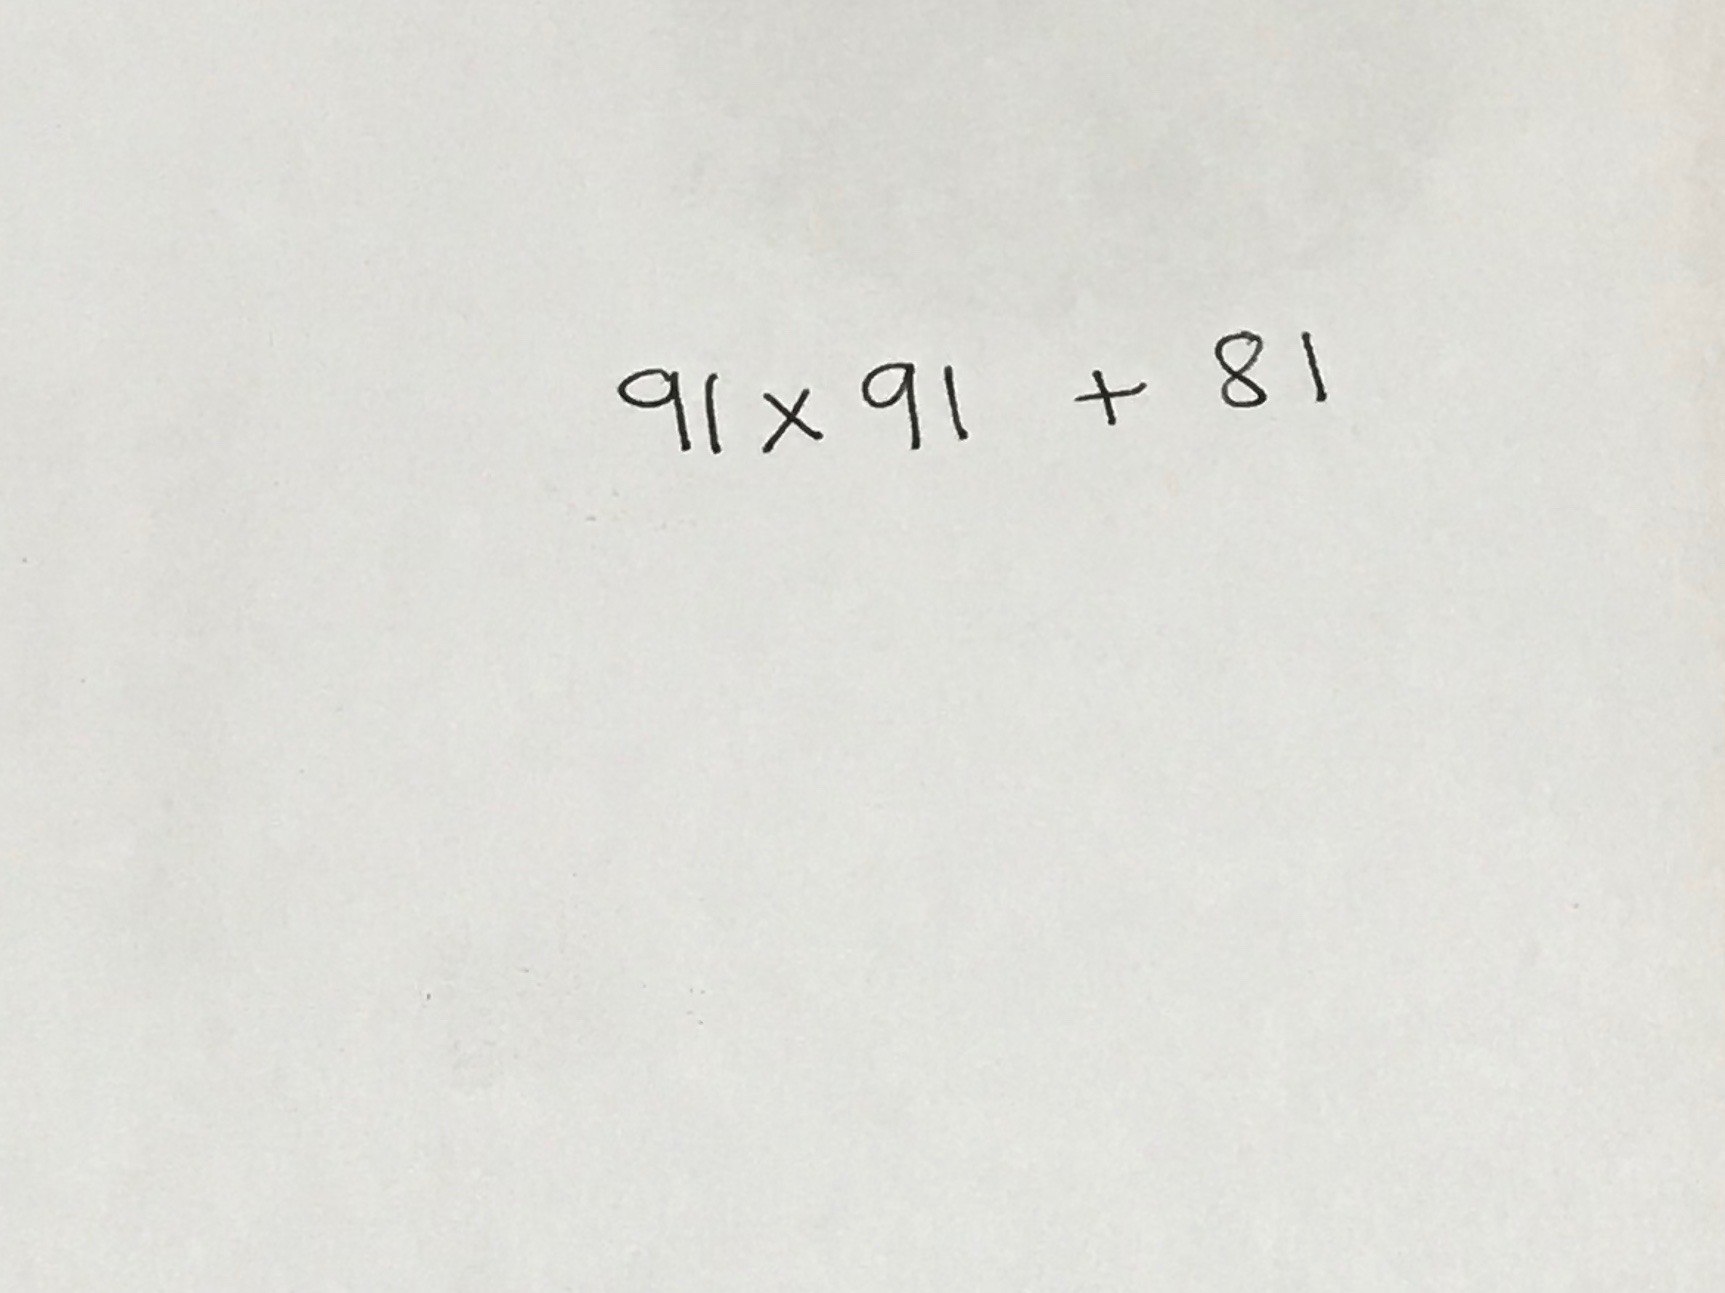 91 x 91 + 81